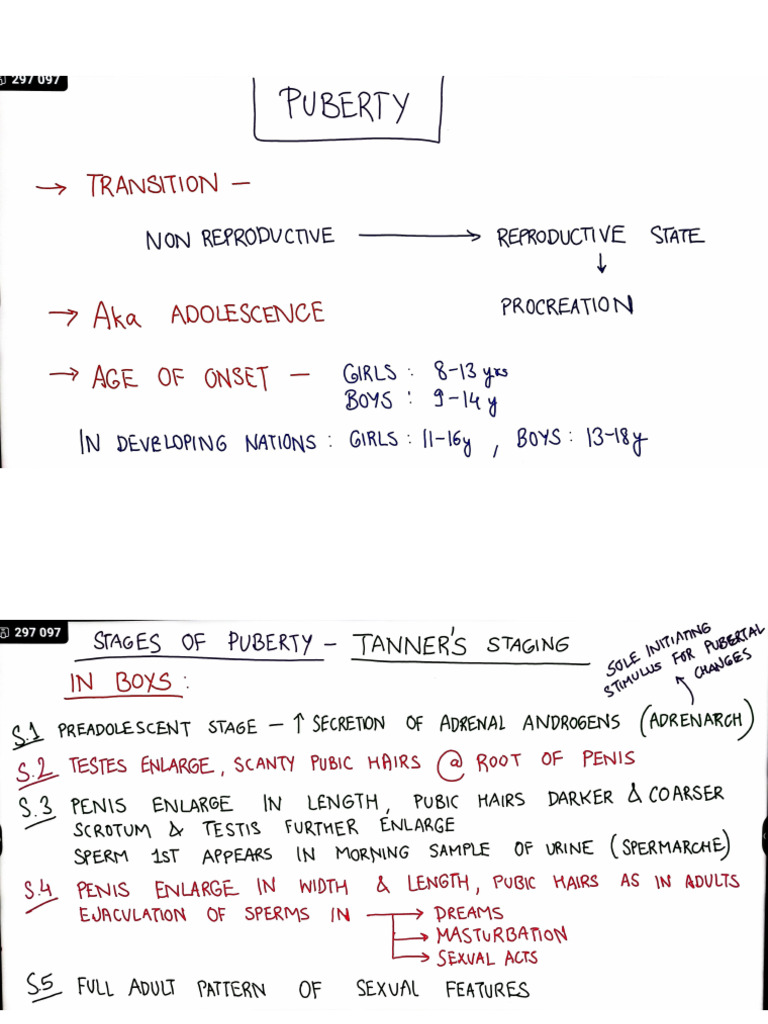 297 097
PUBERTY
→ TRANSITION –
NON REPRODUCTIVE → REPRODUCTIVE STATE
↓
PROCREATION
→ Aka ADOLESCENCE
→ AGE OF ONSET – GIRLS : 8-13 yrs
BOYS : 9-14 y
IN DEVELOPING NATIONS : GIRLS : 11-16y , BOYS : 13-18y
297 097
STAGES OF PUBERTY – TANNER'S STAGING
SOLE INITIATING
STIMULUS FOR PUBERTAL
CHANGES
IN BOYS :
S.1 PREADOLESCENT STAGE – ↑ SECRETION OF ADRENAL ANDROGENS (ADRENARCH)
S.2 TESTES ENLARGE, SCANTY PUBIC HAIRS @ ROOT OF PENIS
S.3 PENIS ENLARGE IN LENGTH, PUBIC HAIRS DARKER & COARSER
SCROTUM & TESTIS FURTHER ENLARGE
SPERM 1ST APPEARS IN MORNING SAMPLE OF URINE (SPERMARCHE)
S.4 PENIS ENLARGE IN WIDTH & LENGTH, PUBIC HAIRS AS IN ADULTS
EJACULATION OF SPERMS IN → DREAMS
→ MASTURBATION
→ SEXUAL ACTS
S.5 FULL ADULT PATTERN OF SEXUAL FEATURES